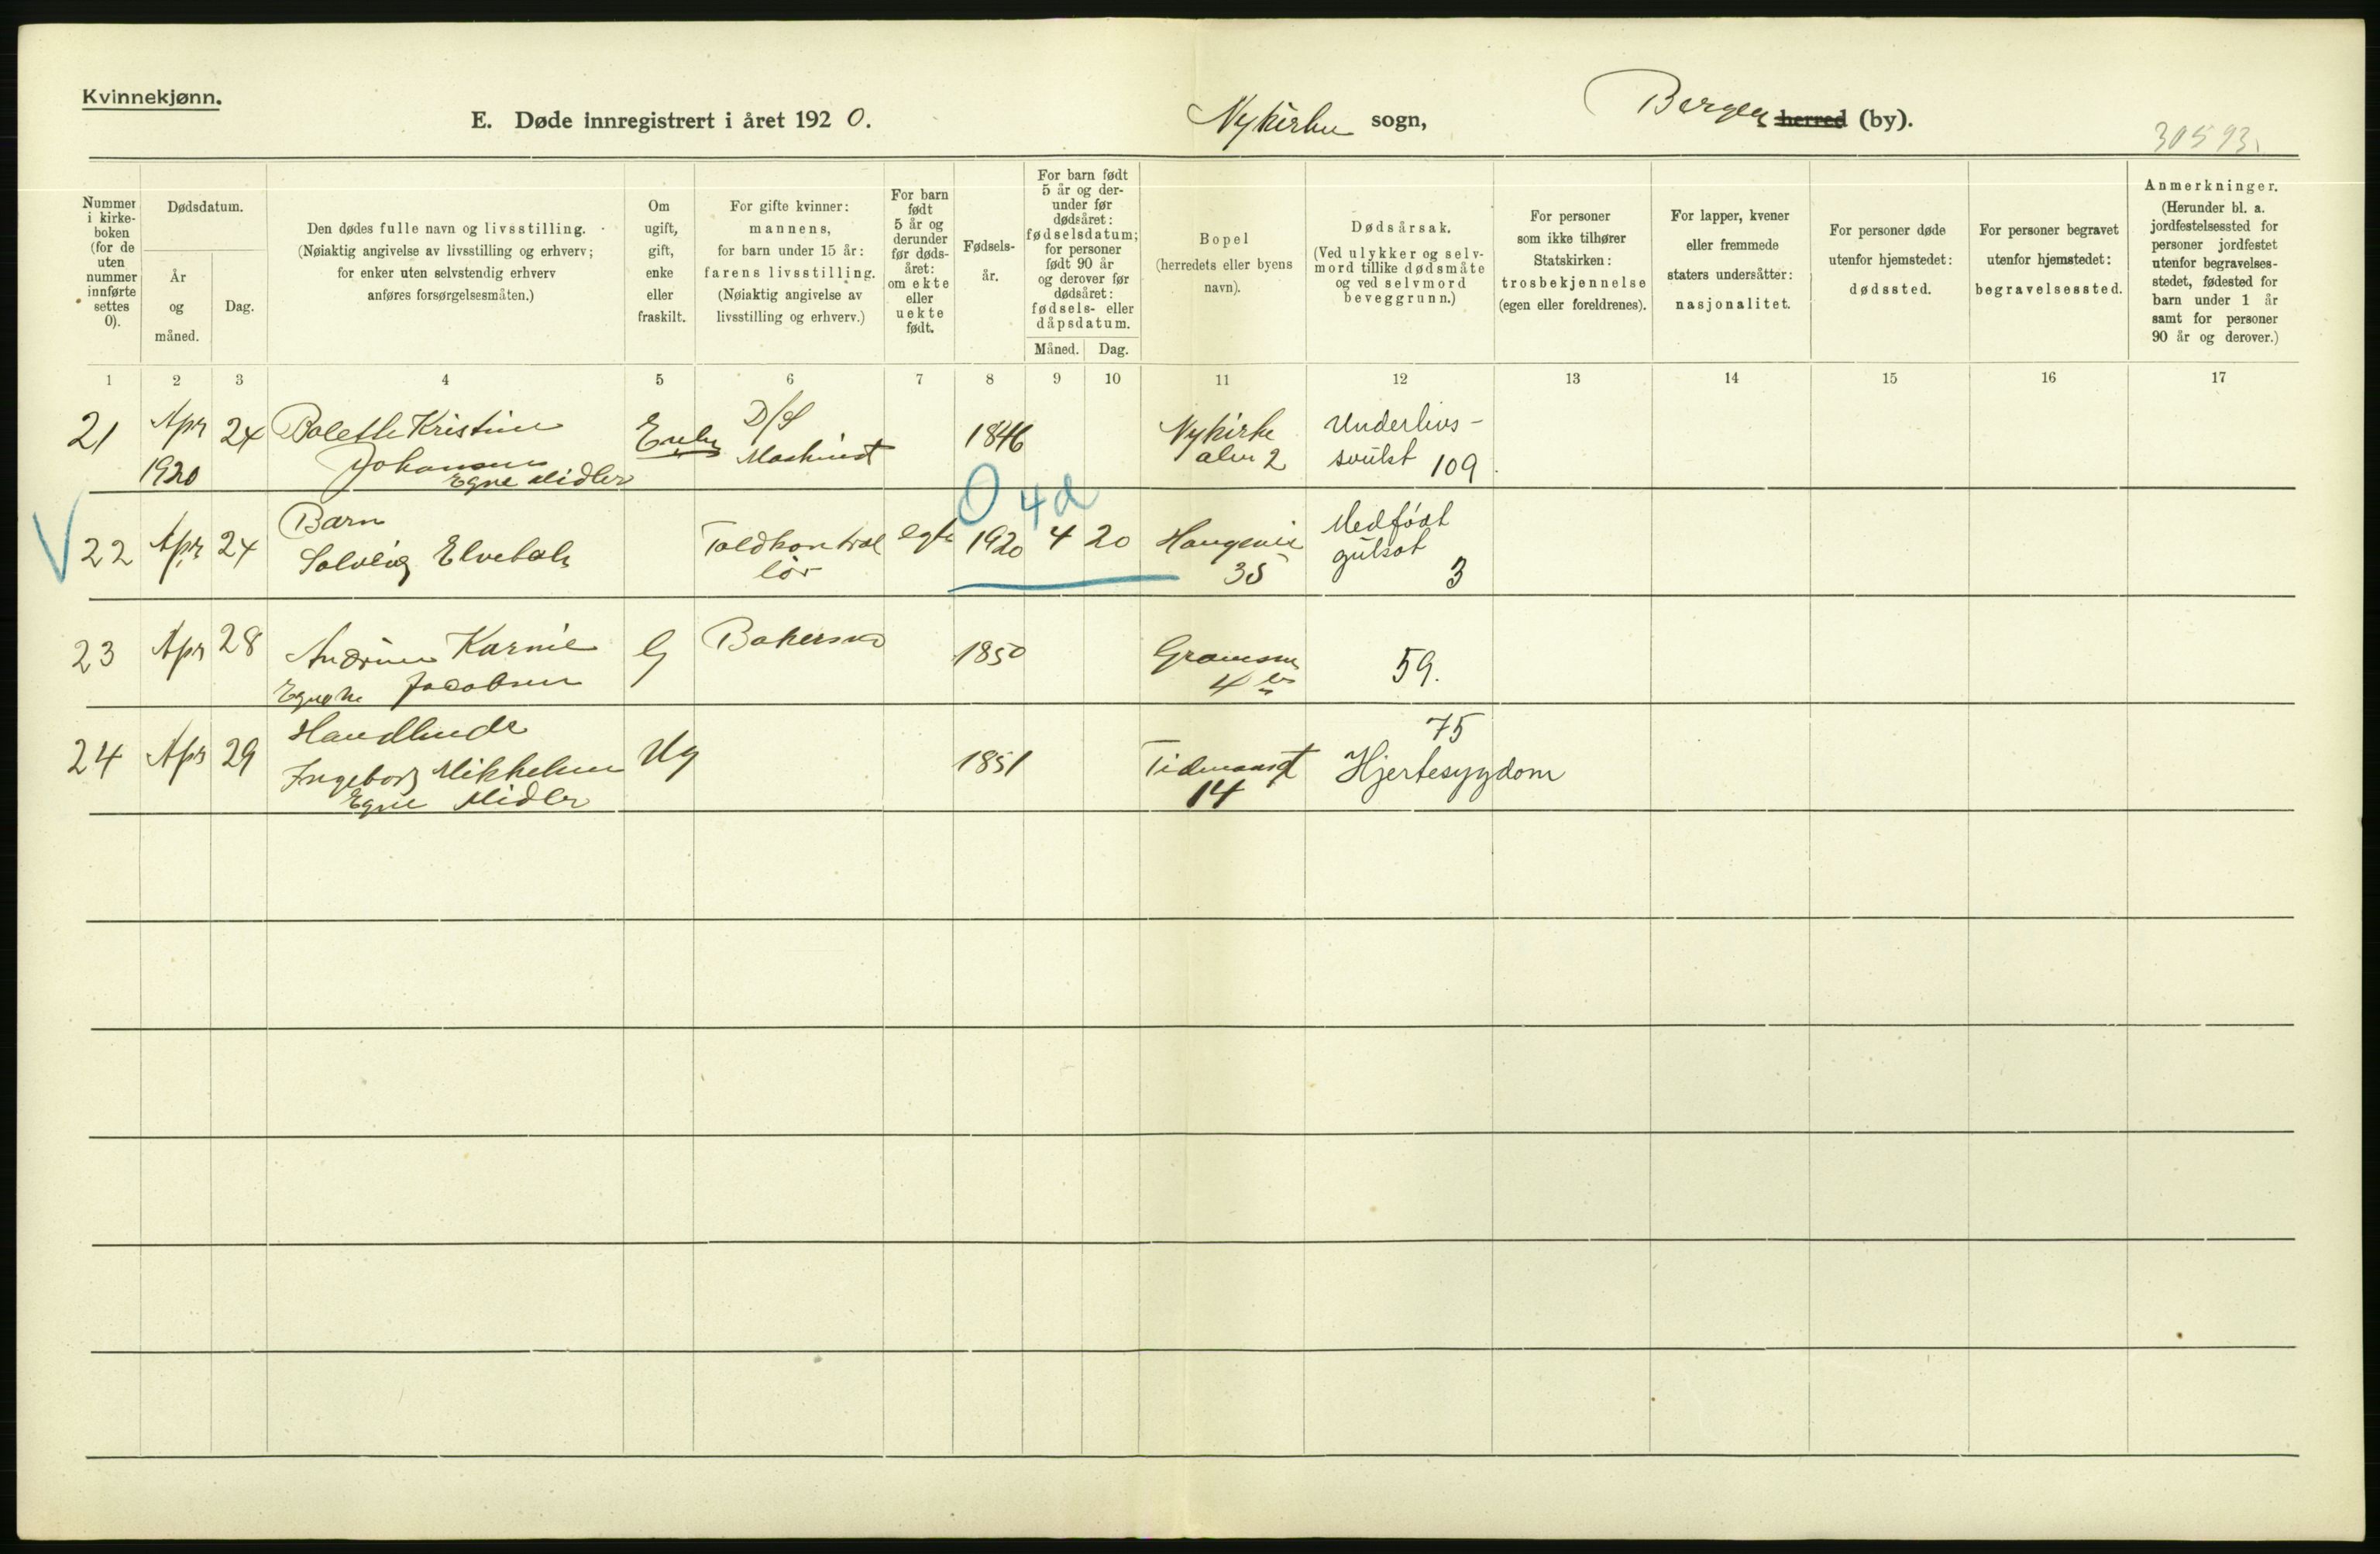 Kvinnekjønn.
E. Døde innregistrert i året 1920.
Nykirke sogn,
Bergen herred (by).
30593.
Nummer i kirke-boken (for de uten nummer innførte settes 0).
Dødsdatum.
År og måned.
Dag.
Den dødes fulle navn og livsstilling.
(Nøiaktig angivelse av livsstilling og erhverv;
for enker uten selvstendig erhverv
anføres forsørgelsesmåten.)
Om ugift, gift, enke eller fraskilt.
For gifte kvinner:
mannens,
for barn under 15 år:
farens livsstilling.
(Nøiaktig angivelse av
livsstilling og erhverv.)
For barn født 5 år og derunder før døds-året: om ekte eller uekte født.
Fødsels-år.
For barn født 5 år og der-under før dødsåret: fødselsdatum; for personer født 90 år og derover før dødsåret: fødsels- eller dåpsdatum.
Måned. Dag.
Bopel
(herredets eller byens
navn).
Dødsårsak.
(Ved ulykker og selv-
mord tillike dødsmåte
og ved selvmord
beveggrunn.)
For personer
som ikke tilhører
Statskirken:
trosbekjennelse
(egen eller foreldrenes).
For lapper, kvener
eller fremmede
staters undersåtter:
nasjonalitet.
For personer døde
utenfor hjemstedet:
dødssted.
For personer begravet
utenfor hjemstedet:
begravelsessted.
Anmerkninger.
(Herunder bl. a.
jordfestelsessted for
personer jordfestet
utenfor begravelses-
stedet, fødested for
barn under 1 år
samt for personer
90 år og derover.)
1 2 3 4 5 6 7 8 9 10 11 12 13 14 15 16 17
21 Apr 1920 24 Bolette Kristine
Johansen
Egne Midler
Enke
D/S
Maskinist
1846
Nykirke
alm 2
Underlivs-
svulst 109
22 Apr 24 Barn
Solveig Elvebak
Toldkontrol
lør
egte
1920 4 20
O 4d
Haugevei
35
Medfødt
gulsot
3
23 Apr 28 Andrine Karnie
Jacobsen
G
Bakersv
1850
4
59.
24 Apr 29 Handlende
Ingeborg Mikkelsen
Egne Midler
Ug
1851
Tidmansgt
14
75
Hjertesygdom